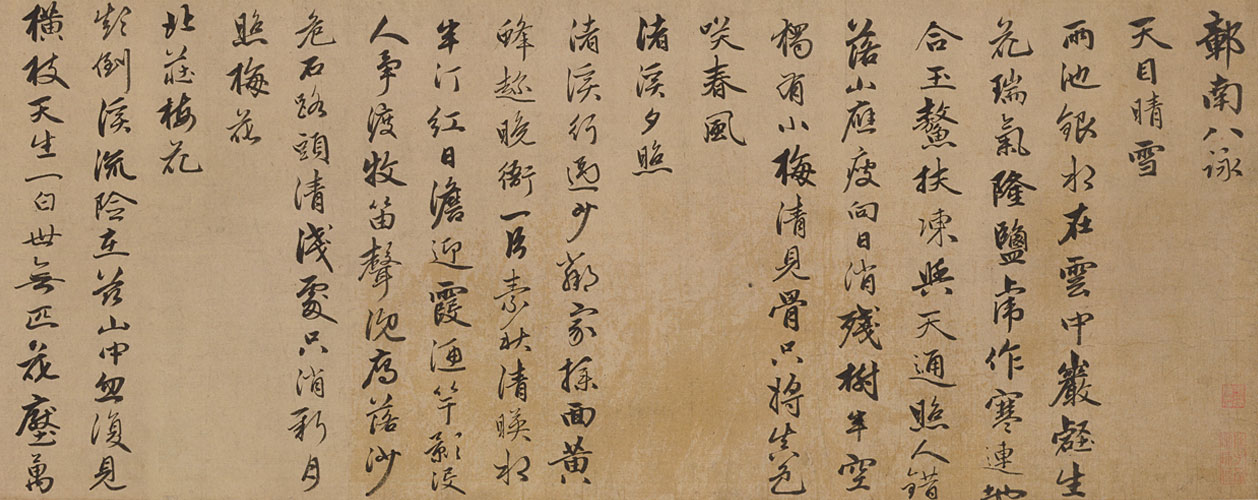 鄣南八詠
天目晴雪
兩池銀水在雲中巖壑生
花瑞氣隆鹽虎作寒連地
合玉鰲扶凍與天通照人錯
落山應瘦向日消殘樹半空
獨有小梅清見骨只將真色
咲春風
渚溪夕照
渚溪行過少鄰家採面黃
蜂趂晚衙一片素秋清映水
半汀紅日澹迎霞酒竿影沒
人爭渡牧笛聲沉鴈落沙
危石路頭清淺處只消新月
照梅花
北莊梅花
影倒溪流在茲山中忽復見
橫枝天生一白世無匹花壓萬